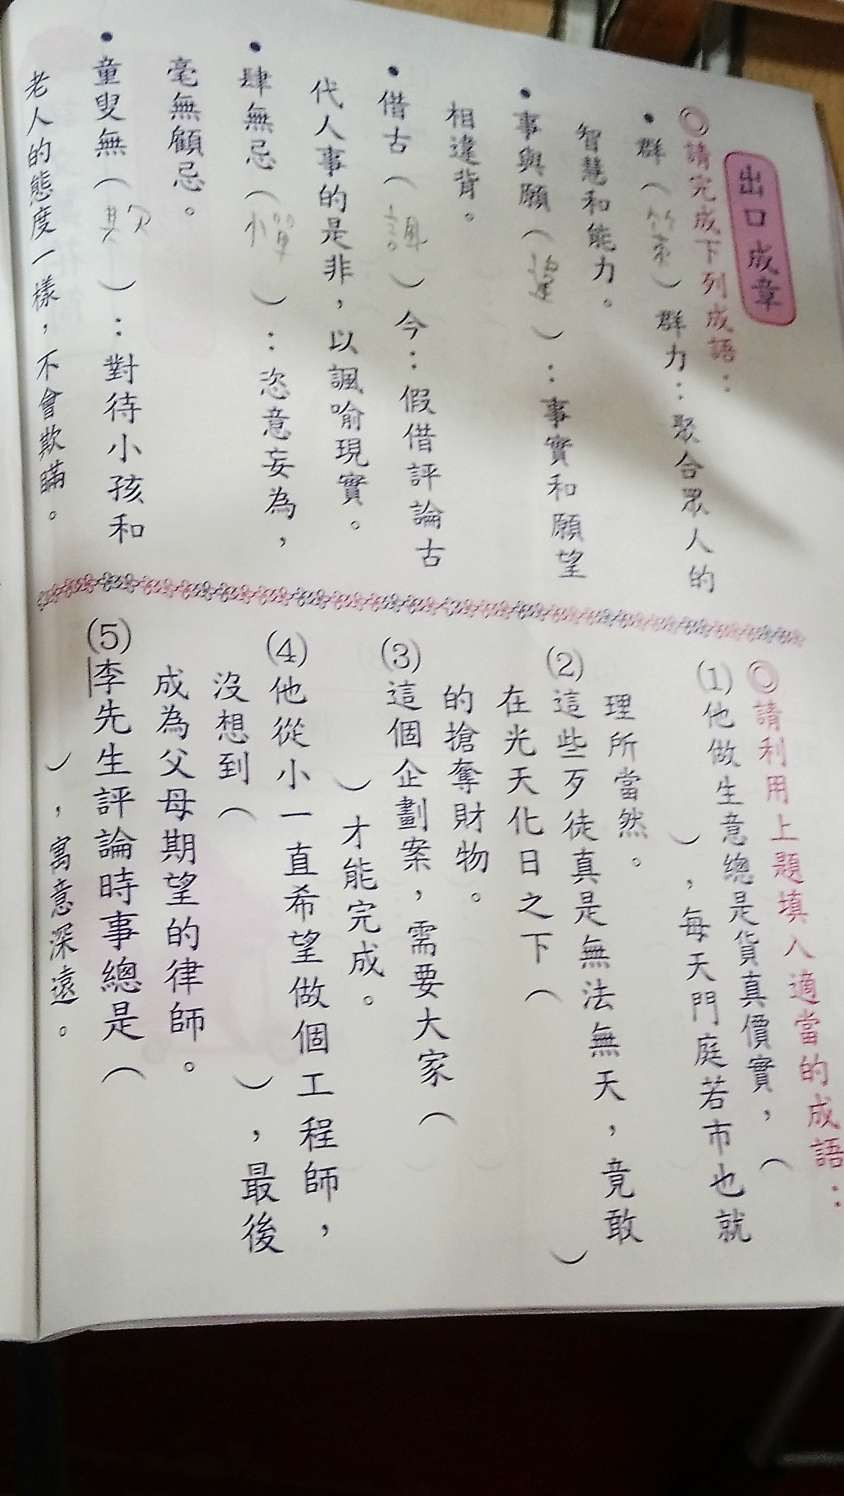 出口成章
◎請完成下列成語：
•群（策）群力：聚合眾人的
智慧和能力。
•事與願（違）：事實和願望
相違背。
•借古（諷）今：假借評論古
代人事的是非，以諷喻現實。
•肆無忌（憚）：恣意妄為，
毫無顧忌。
•童叟無（欺）：對待小孩和
老人的態度一樣，不會欺瞞。
◎請利用上題填入適當的成語：
(1)他做生意總是貨真價實，（
），每天門庭若市也就
理所當然。
(2)這些歹徒真是無法無天，竟敢
在光天化日之下（　）
的搶奪財物。
(3)這個企劃案，需要大家（
）才能完成。
(4)他從小一直希望做個工程師，
沒想到（　），最後
成為父母期望的律師。
(5)李先生評論時事總是（
），寓意深遠。